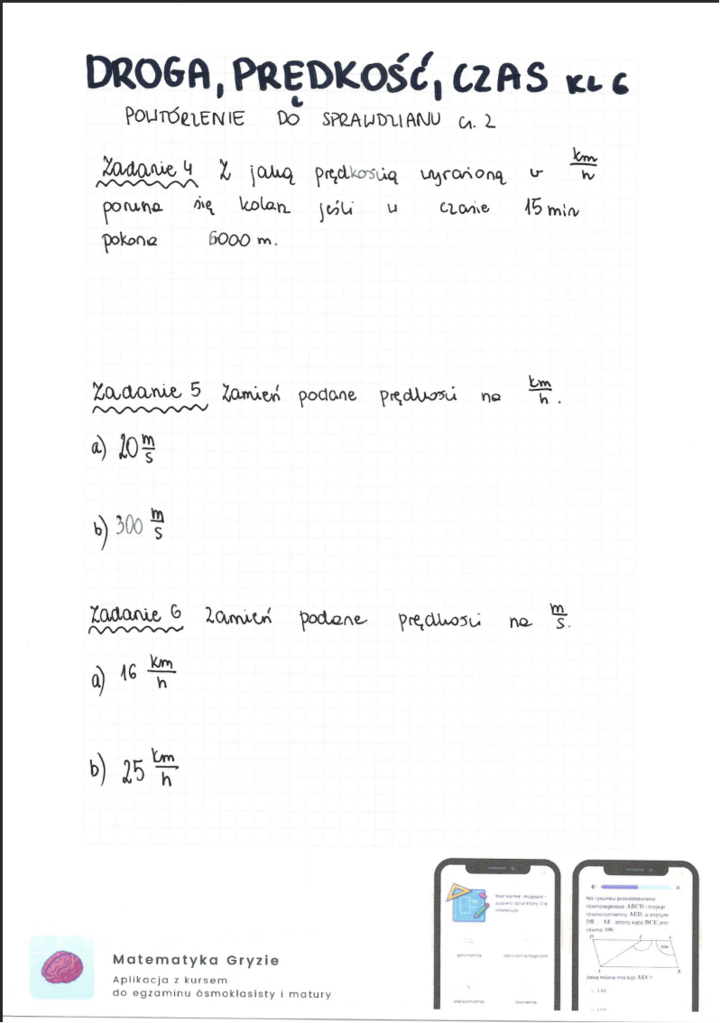 DROGA, PRĘDKOŚĆ, CZAS KL 6
POWTÓRZENIE DO SPRAWDZIANU cz. 2
Zadanie 4 Z jaką prędkością wyrażoną w km/h
porusza się kolarz jeśli w czasie 15 min
pokona 6000 m.
Zadanie 5 Zamień podane prędkości na km/h.
a) 20 m/s
b) 300 m/s
Zadanie 6 Zamień podane prędkości na m/s.
a) 16 km/h
b) 25 km/h
Matematyka Gryzie
Aplikacja z kursem
do egzaminu ósmoklasisty i matury
Na rysunku przedstawiono
równoległobok ABCD i trójkąt
równoramienny AED, w którym
DE = AE
Jaką miarę ma kąt AEC?
geometria
stereometria
równania